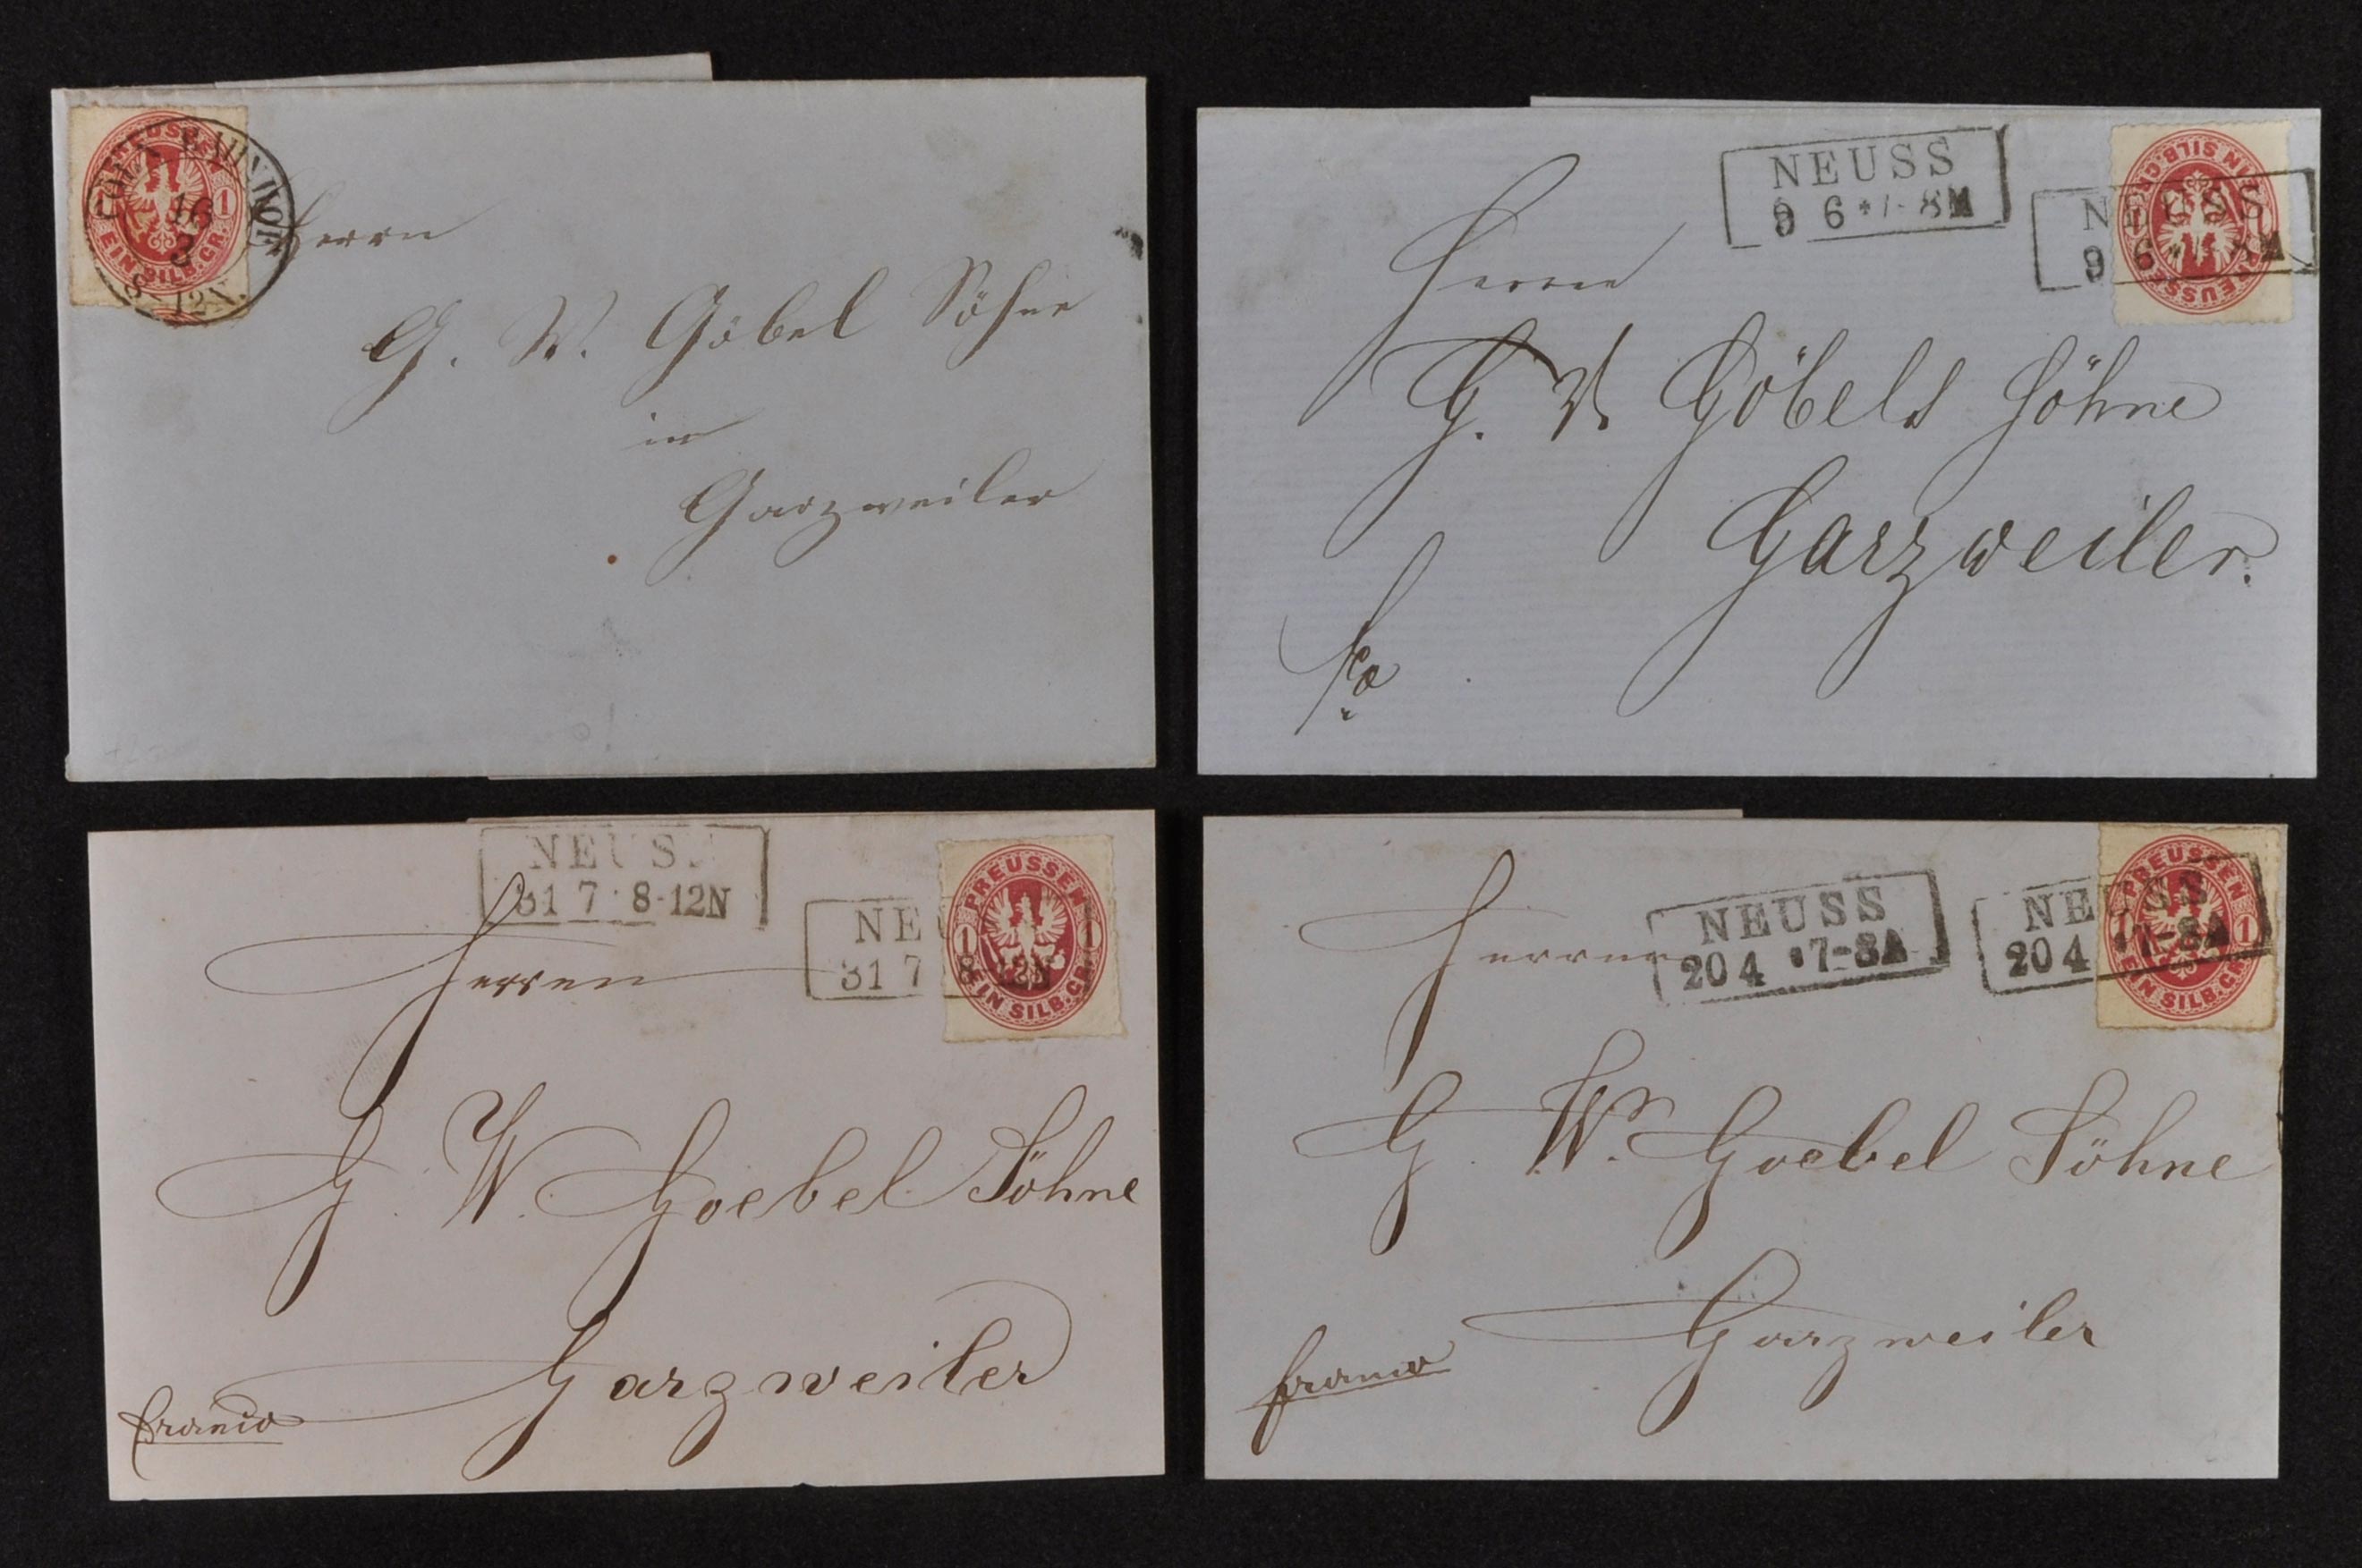 PREUSSEN
1
EIN SILB.GR.
CÖLN BAHNHOF
16
3
8-12N.
Herrn
G. W. Göbel Söhne
in
Garzweiler
NEUSS
9 6 7-8M
PREUSSEN
EIN SILB.GR.
NEUSS
9 6
Herrn
G. W Göbels Söhne
Garzweiler.
fco
NEUS
31 7 8-12N
PREUSSEN
1 1
EIN SILB.GR.
NEU
31 7 8-12N
Herren
G. W. Goebel Söhne
Garzweiler
franco
NEUSS
20 4 7-8A
PREUSSEN
1
EIN SILB.GR.
NEUSS
20 4 7-8A
Herren
G. W. Goebel Söhne
Garzweiler
franco